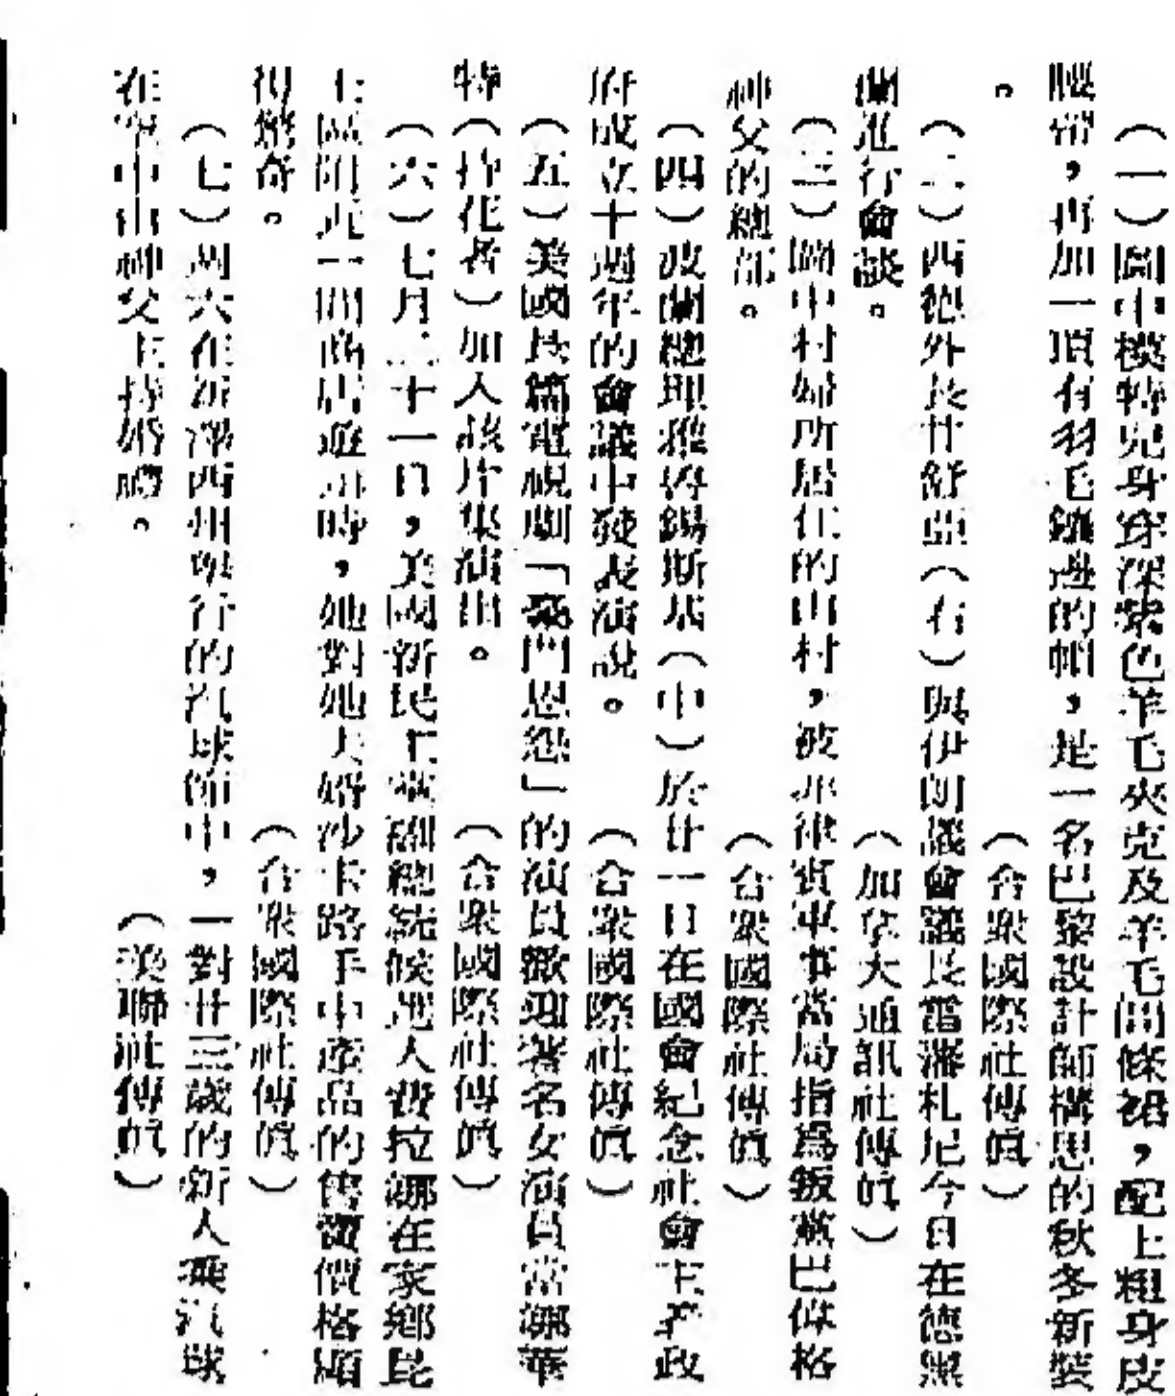 （一）圖中模特兒身穿深紫色羊毛夾克及羊毛間條裙，配上粗身皮
腰帶，再加一頂有羽毛鑲邊的帽，是一名巴黎設計師構思的秋冬新裝
。（合衆國際社傳眞）
（二）西德外長甘舒亞（右）與伊朗議會議長雷藩札尼今日在德黑
蘭進行會談。（加拿大通訊社傳眞）
（三）圖中村婦所居住的山村，被菲律賓軍事當局指爲叛黨巴偉格
神父的總部。（合衆國際社傳眞）
（四）波蘭總理雅魯錫斯基（中）於廿一日在國會紀念社會主義政
府成立十週年的會議中發表演說。（合衆國際社傳眞）
（五）美國長篇電視劇「豪門恩怨」的演員歡迎著名女演員當娜華
特（持花者）加入該片集演出。（合衆國際社傳眞）
（六）七月二十一日，美國新民主黨副總統候選人費拉娜在家鄉昆
士區附近一間商店遊說時，她對她夫婿沙卡路手中產品的售賣價格顯
得驚奇。（合衆國際社傳眞）
（七）周六在新澤西州舉行的汽球節中，一對廿三歲的新人乘汽球
在空中由神父主持婚禮。（美聯社傳眞）